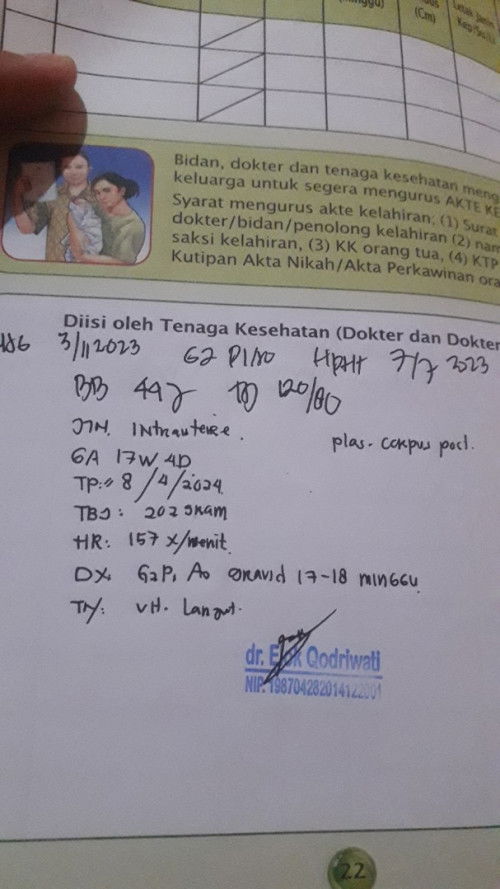 (Cm)
Bidan, dokter dan tenaga kesehatan meng
keluarga untuk segera mengurus AKTE KE
Syarat mengurus akte kelahiran, (1) Surat
dokter/bidan/penolong kelahiran (2) nam
saksi kelahiran, (3) KK orang tua, (4) KTP
Kutipan Akta Nikah/Akta Perkawinan ora
Diisi oleh Tenaga Kesehatan (Dokter dan Dokter
USG 3/11 2023 G2 P1/A0 HPHT 7/7 2023
BB 44,2 TD 120/80
JTH. Intrauterine. plas. corpus post.
GA 17W 4D
TP: 8/4/2024
TBJ: 202 gram
HR: 157 x/menit
DX. G2P1A0 Gravid 17-18 minggu
dr. Qodriwati
NIP. 198704282014122001
22